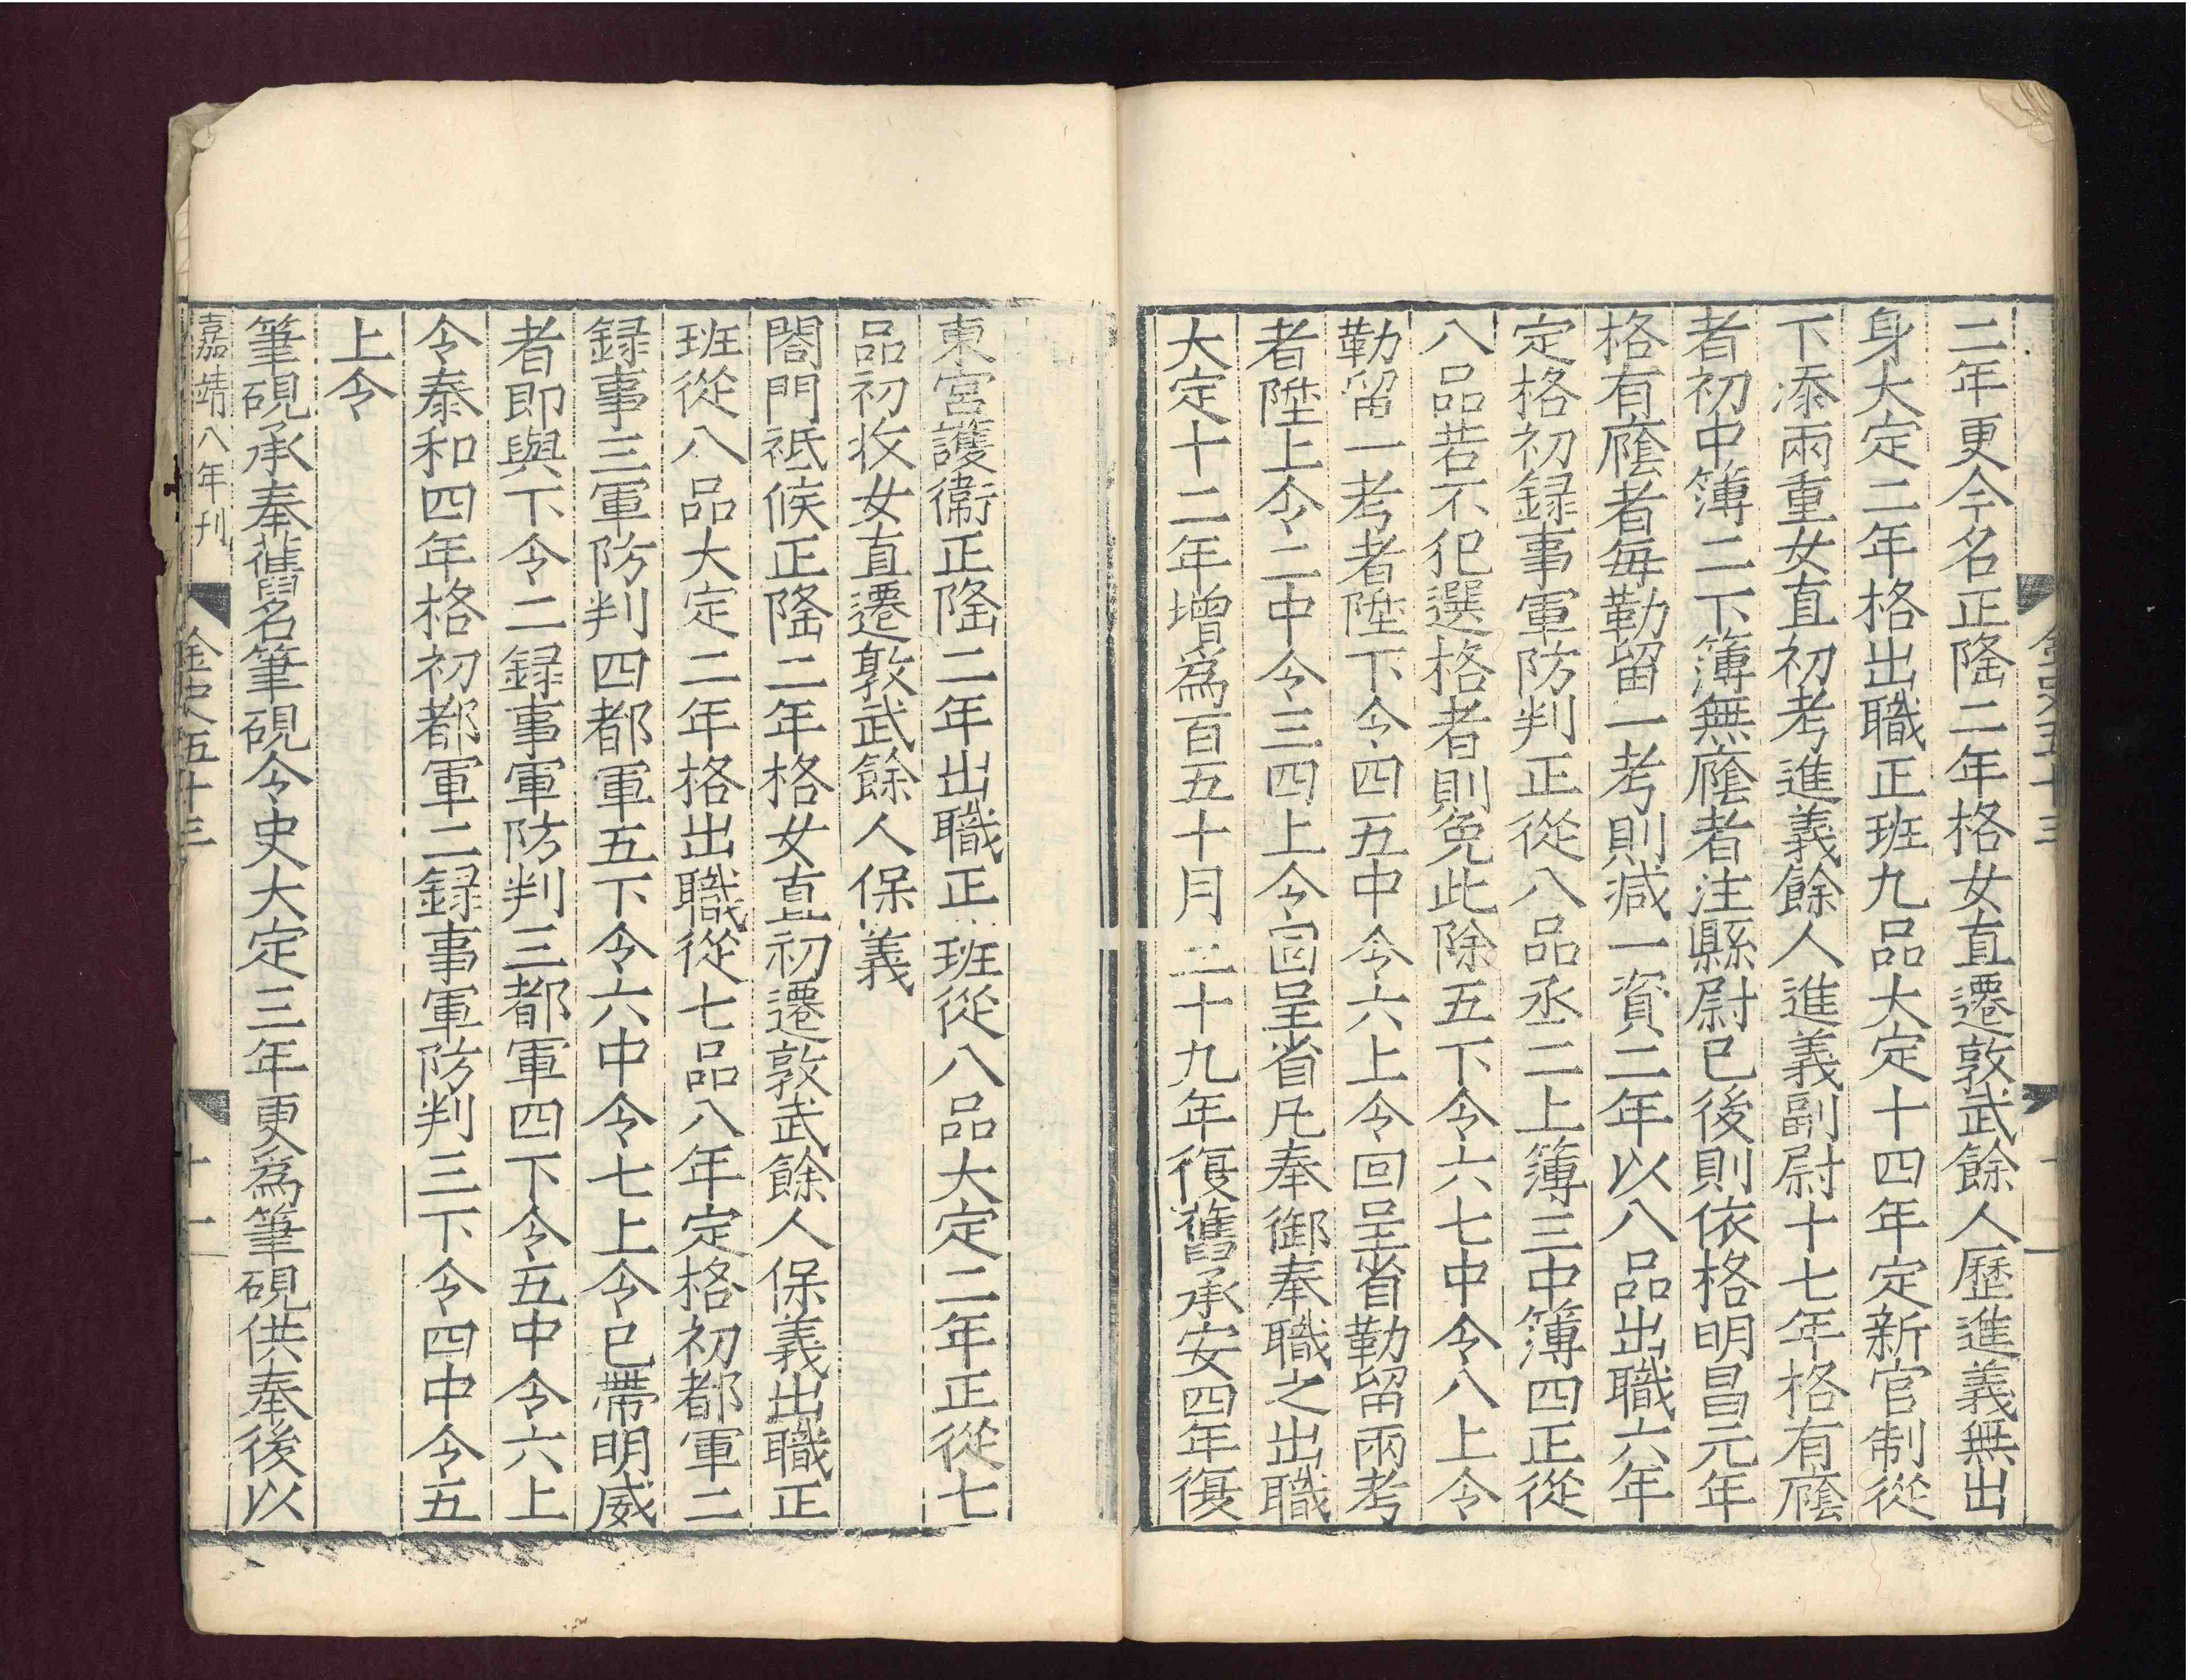 金史五十三
二年更今名正隆二年格女直遷敦武餘人歷進義無出
身大定二年格出職正班九品大定十四年定新官制從
下添兩重女直初考進義餘人進義副尉十七年格有廕
者初中簿二下簿無廕者注縣尉已後則依格明昌元年
格有廕者每勒留一考則減一資二年以八品出職六年
定格初錄事軍防判正從八品丞二上簿三中簿四正從
八品若不犯選格者則免此除五下令六七中令八上令
勒留一考者陞下令四五中令六上令回呈省勒留兩考
者陞上令二中令三四上令回呈省凡奉御奉職之出職
大定十二年增為百五十月二十九年復舊承安四年復
東宮護衛正隆二年出職正班從八品大定二年正從七
品初收女直遷敦武餘人保義
閤門祗候正隆二年格女直初遷敦武餘人保義出職正
班從八品大定二年格出職從七品八年定格初都軍二
錄事三軍防判四都軍五下令六中令七上令已帶明威
者即與下令二錄事軍防判三都軍四下令五中令六上
令泰和四年格初都軍二錄事軍防判三下令四中令五
上令
筆硯承奉舊名筆硯令史大定三年更為筆硯供奉後以
嘉靖八年刊
金史五十三
十二